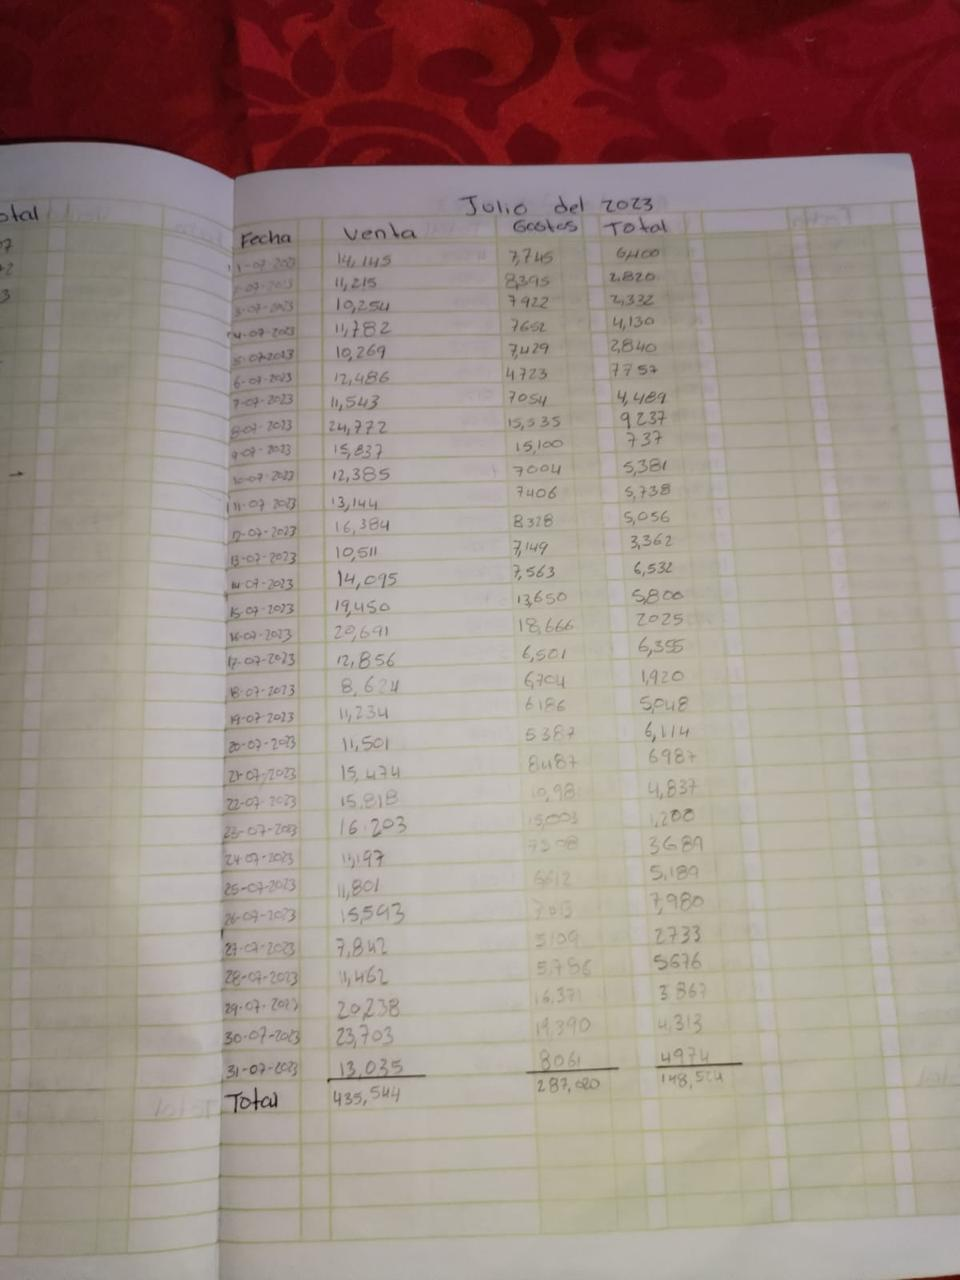 otal
7
2
3
Julio del 2023
Fecha Venta Gastos Total
1-07-2023 14,145 7,745 6,400
2-07-2023 11,215 8,395 2,820
3-07-2023 10,254 7922 2,332
4-07-2023 11,782 7652 4,130
5-07-2023 10,269 7,429 2,840
6-07-2023 12,486 4723 7757
7-07-2023 11,543 7054 4,489
8-07-2023 24,772 15,535 9237
9-07-2023 15,837 15,100 737
10-07-2023 12,385 7004 5,381
11-07-2023 13,144 7406 5,738
12-07-2023 16,384 8328 5,056
13-07-2023 10,511 7,149 3,362
14-07-2023 14,095 7,563 6,532
15-07-2023 19,450 13,650 5,800
16-07-2023 20,691 18,666 2025
17-07-2023 12,856 6,501 6,355
18-07-2023 8,624 6,704 1,920
19-07-2023 11,234 6186 5,048
20-07-2023 11,501 5387 6,114
21-07-2023 15,474 8487 6987
22-07-2023 15,818 10,981 4,837
23-07-2023 16,203 15,003 1,200
24-07-2023 11,197 7508 3689
25-07-2023 11,801 6612 5,189
26-07-2023 15,593 7,613 7,980
27-07-2023 7,842 5109 2733
28-07-2023 11,462 5,786 5676
29-07-2023 20,238 16,371 3867
30-07-2023 23,703 19,390 4,313
31-07-2023 13,035 8061 4974
Total 435,544 287,020 148,524